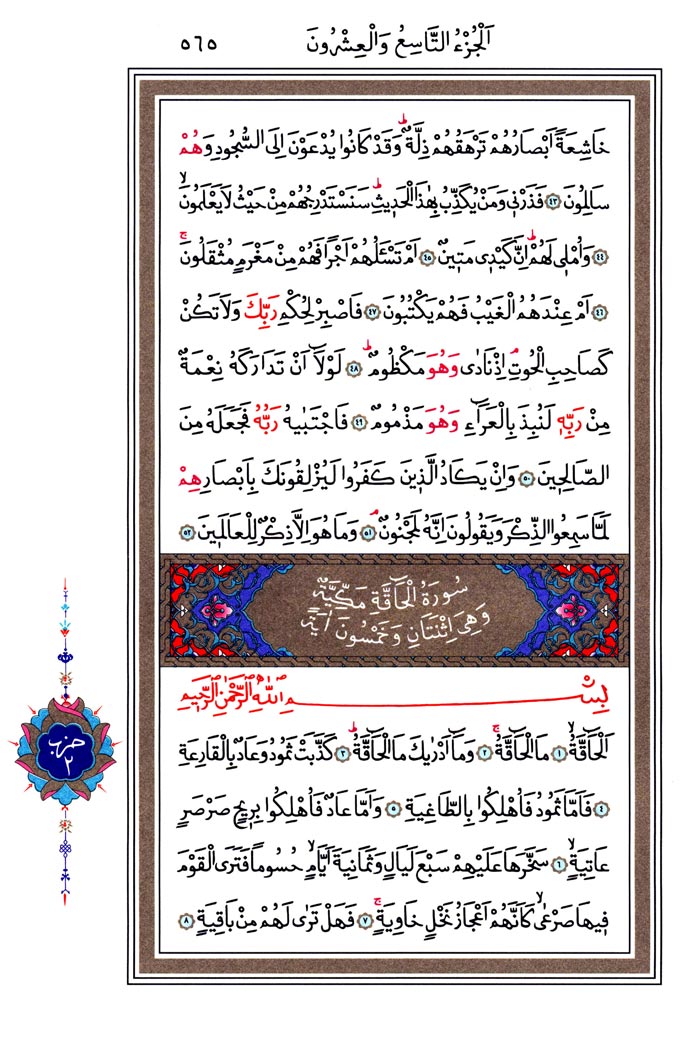 اَلْجُزْءُ التَّاسِعُ وَالْعِشْرُونَ ٥٦٥
خَاشِعَةً اَبْصَارُهُمْ تَرْهَقُهُمْ ذِلَّةٌۜ وَقَدْ كَانُوا يُدْعَوْنَ اِلَى السُّجُودِ وَهُمْ
سَالِمُونَ ﴿٤٣﴾ فَذَرْنٖي وَمَنْ يُكَذِّبُ بِهٰذَا الْحَدٖيثِۜ سَنَسْتَدْرِجُهُمْ مِنْ حَيْثُ لَا يَعْلَمُونَۙ
﴿٤٤﴾ وَاُمْلٖي لَهُمْۜ اِنَّ كَيْدٖي مَتٖينٌ ﴿٤٥﴾ اَمْ تَسْـَٔلُهُمْ اَجْرًا فَهُمْ مِنْ مَغْرَمٍ مُثْقَلُونَۚ
﴿٤٦﴾ اَمْ عِنْدَهُمُ الْغَيْبُ فَهُمْ يَكْتُبُونَ ﴿٤٧﴾ فَاصْبِرْ لِحُكْمِ رَبِّكَ وَلَا تَكُنْ
كَصَاحِبِ الْحُوتِۢ اِذْ نَادٰى وَهُوَ مَكْظُومٌۜ ﴿٤٨﴾ لَوْلَٓا اَنْ تَدَارَكَهُ نِعْمَةٌ
مِنْ رَبِّهٖ لَنُبِذَ بِالْعَرَٓاءِ وَهُوَ مَذْمُومٌ ﴿٤٩﴾ فَاجْتَبٰيهُ رَبُّهُ فَجَعَلَهُ مِنَ
الصَّالِحٖينَ ﴿٥٠﴾ وَاِنْ يَكَادُ الَّذٖينَ كَفَرُوا لَيُزْلِقُونَكَ بِاَبْصَارِهِمْ
لَمَّا سَمِعُوا الذِّكْرَ وَيَقُولُونَ اِنَّهُ لَمَجْنُونٌۢ ﴿٥١﴾ وَمَا هُوَ اِلَّا ذِكْرٌ لِلْعَالَمٖينَ ﴿٥٢﴾
سُورَةُ الْحَٓاقَّةِ مَكِّيَّةٌ
وَهِيَ اِثْنَتَانِ وَخَمْسُونَ اٰيَةً
بِسْمِ اللّٰهِ الرَّحْمٰنِ الرَّحٖيمِ
اَلْحَٓاقَّةُۙ ﴿١﴾ مَا الْحَٓاقَّةُۚ ﴿٢﴾ وَمَٓا اَدْرٰيكَ مَا الْحَٓاقَّةُۜ ﴿٣﴾ كَذَّبَتْ ثَمُودُ وَعَادٌ بِالْقَارِعَةِ
﴿٤﴾ فَاَمَّا ثَمُودُ فَاُهْلِكُوا بِالطَّاغِيَةِ ﴿٥﴾ وَاَمَّا عَادٌ فَاُهْلِكُوا بِرٖيحٍ صَرْصَرٍ
عَاتِيَةٍۙ ﴿٦﴾ سَخَّرَهَا عَلَيْهِمْ سَبْعَ لَيَالٍ وَثَمَانِيَةَ اَيَّامٍۙ حُسُومًا فَتَرَى الْقَوْمَ
فٖيهَا صَرْعٰىۙ كَاَنَّهُمْ اَعْجَازُ نَخْلٍ خَاوِيَةٍۚ ﴿٧﴾ فَهَلْ تَرٰى لَهُمْ مِنْ بَاقِيَةٍ ﴿٨﴾
حزب
٢